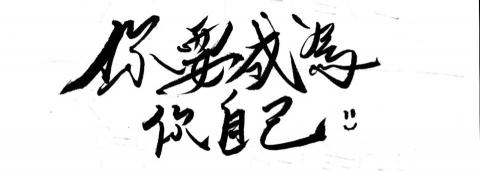 你要成為
你自己